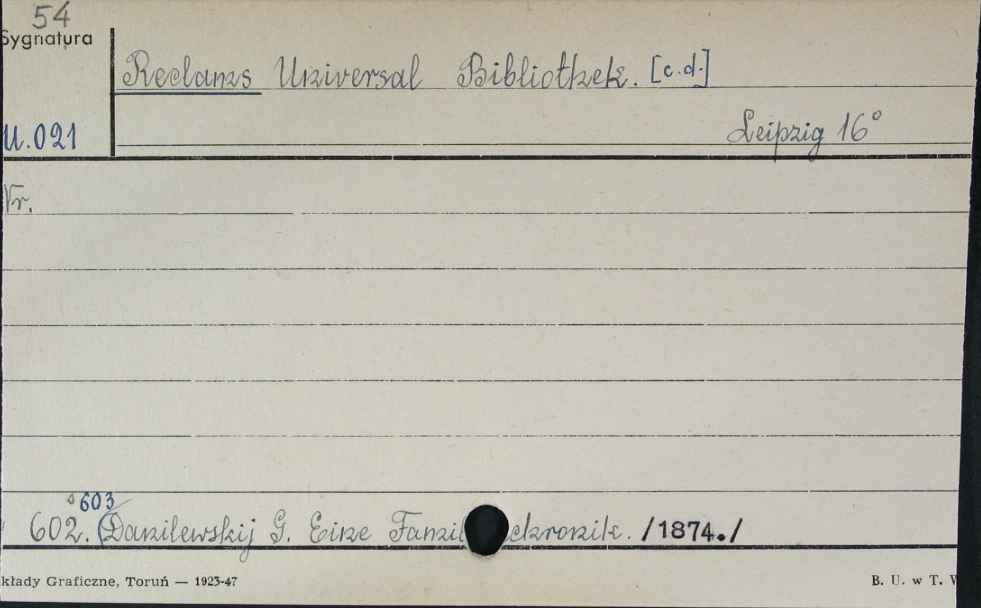 54
Sygnatura
Reclams Universal Bibliothek. [c.d.]
U.021
Leipzig 16°
Nr.
603
602. Danilewskij G. Eine Famil chronik. /1874./
kłady Graficzne, Toruń — 1923-47
B. U. w T.